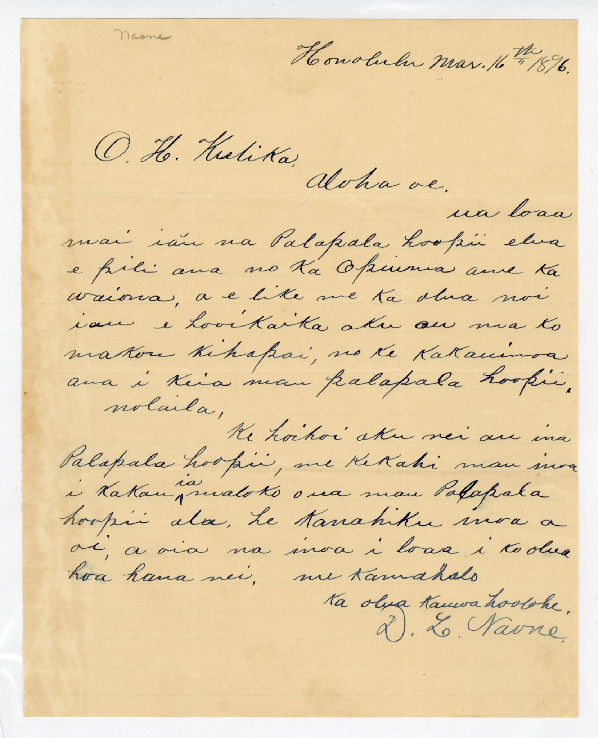 Naone
Honolulu Mar. 16th 1896.
O. H. Kulika.
Aloha oe.
ua loaa
mai iău na Palapala hoopii elua
e pili ana no ka Opiuma ame ka
waiona, a e like me ka olua noi
iau e hooikaika aku au ma ko
makou kihapai, no ke kakauinoa
ana i keia mau palapala hoopii.
nolaila,
Ke hoihoi aku nei au ina
Palapala hoopii, me kekahi mau inoa
i kakau ia maloko oua mau Palapala
hoopii ala. he Kanahiku inoa a
oi, a oia na inoa i loaa i ko olua
hoa hana nei. me Kamahalo
Ka olua kauwa hoolohe.
D. L. Naone.